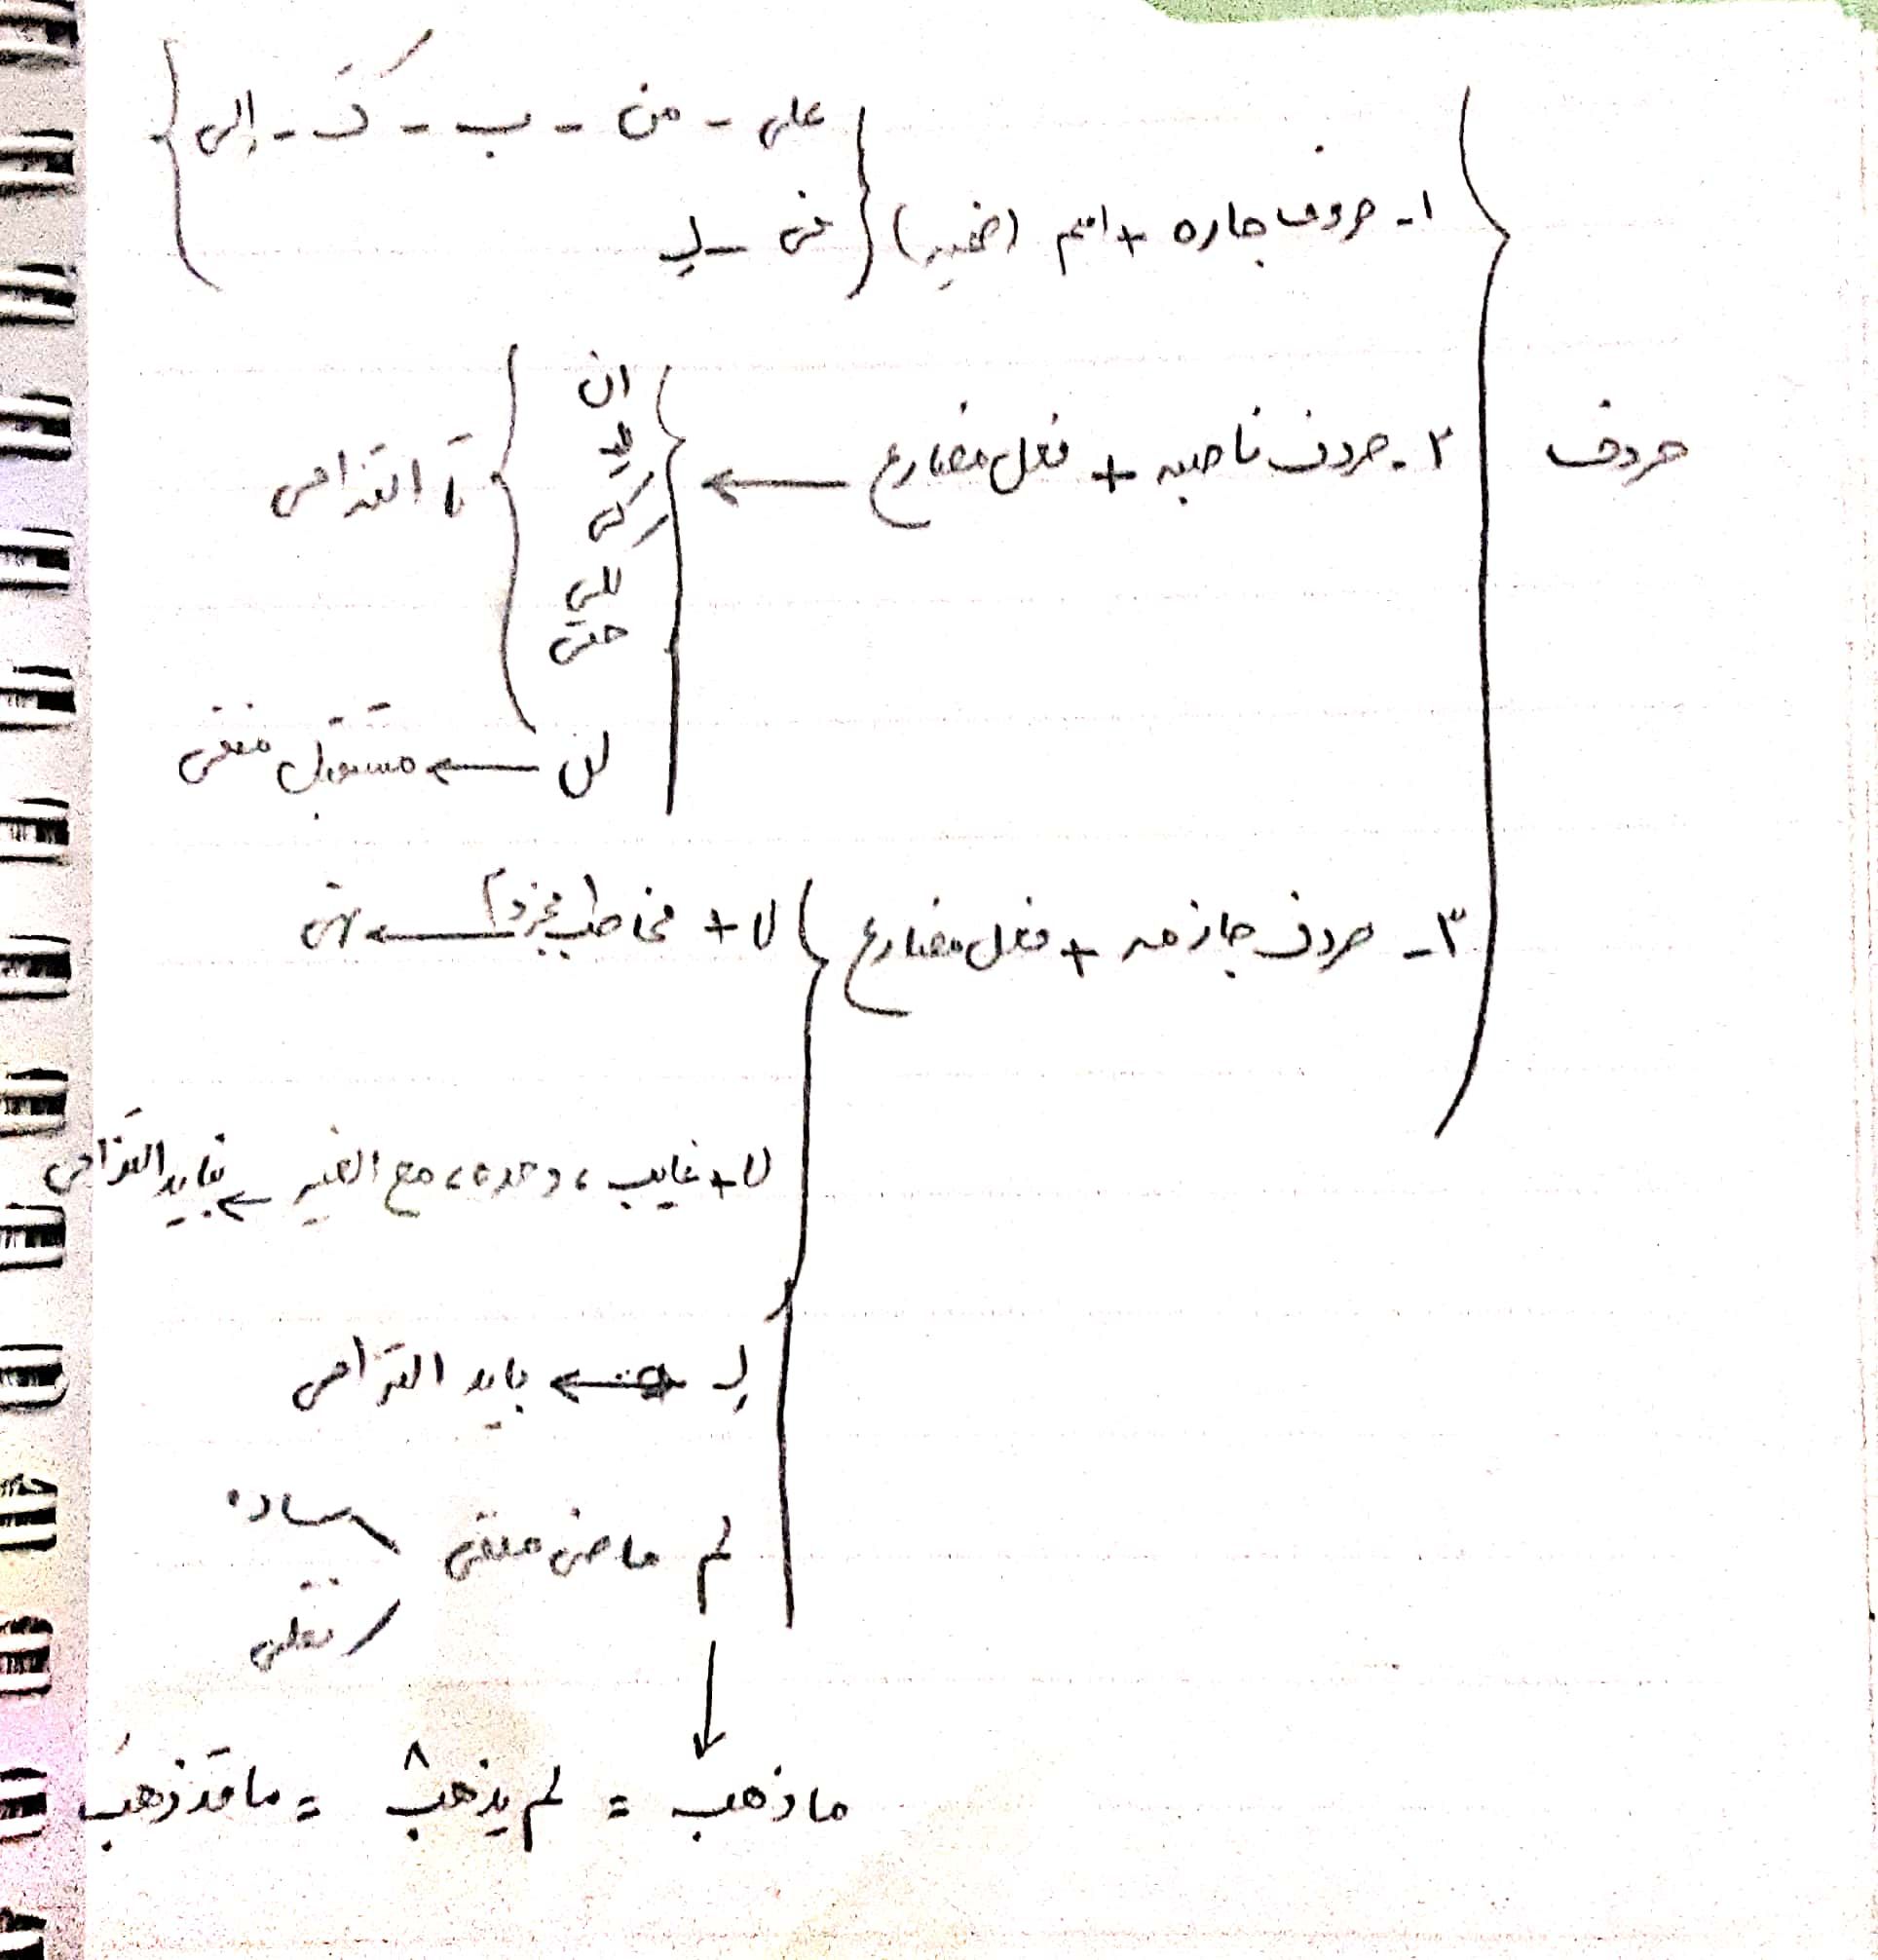 حروف
۱- حروف جاره + اسم (ضمیر)
علی - من - ب - کَ - إلی
عن - لِ
۲- حروف ناصبه + فعل مضارع ←
ان
لِ
کی
لکی
حتی
تا التزامی
لن ← مستقبل منفی
۳- حروف جازمه + فعل مضارع
لا + مخاطب ← نهی
لا + غایب، وحده، مع الغیر ← نباید التزامی
لِ ← باید التزامی
لم ماضی منفی
ساده
نقلی
ما ذهب = لم یذهب = ما قد ذهب